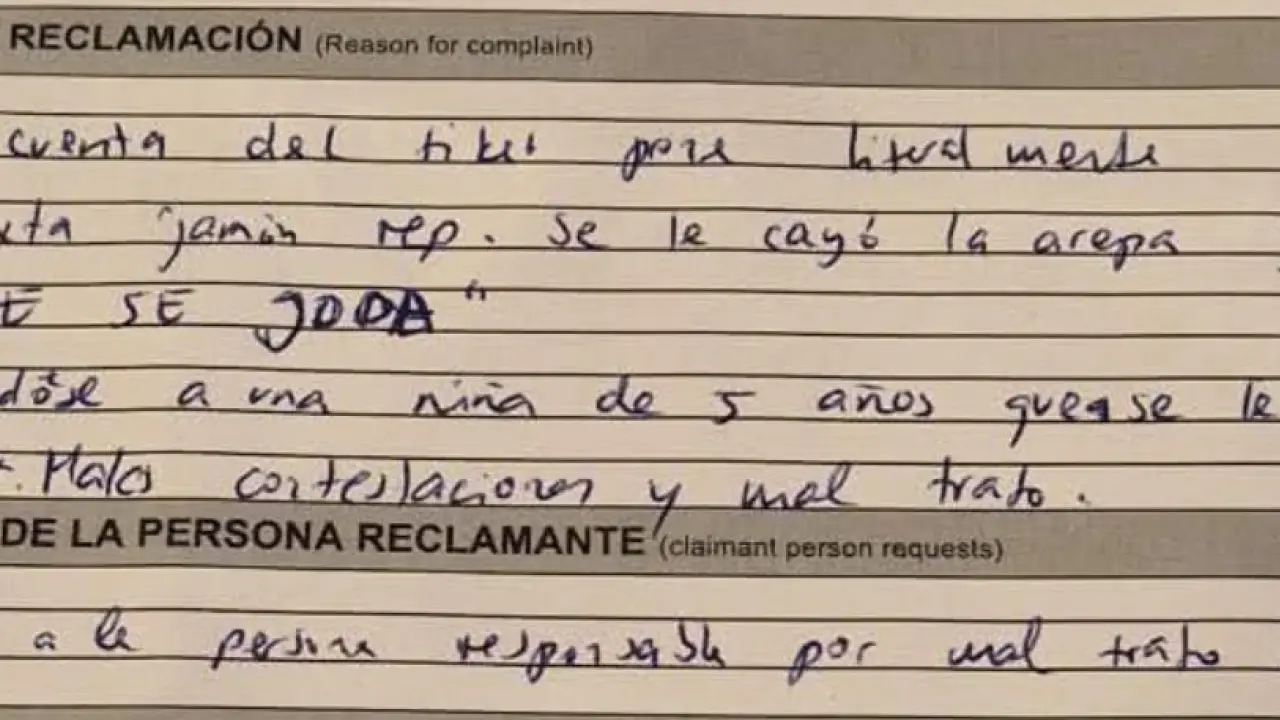 RECLAMACIÓN (Reason for complaint)
cuenta del tiket pone literalmente
xta "jamón rep. Se le cayó la arepa
E SE JODA"
dóse a una niña de 5 años que se le
. Malas contestaciones y mal trato.
DE LA PERSONA RECLAMANTE (claimant person requests)
a la persona responsable por mal trato